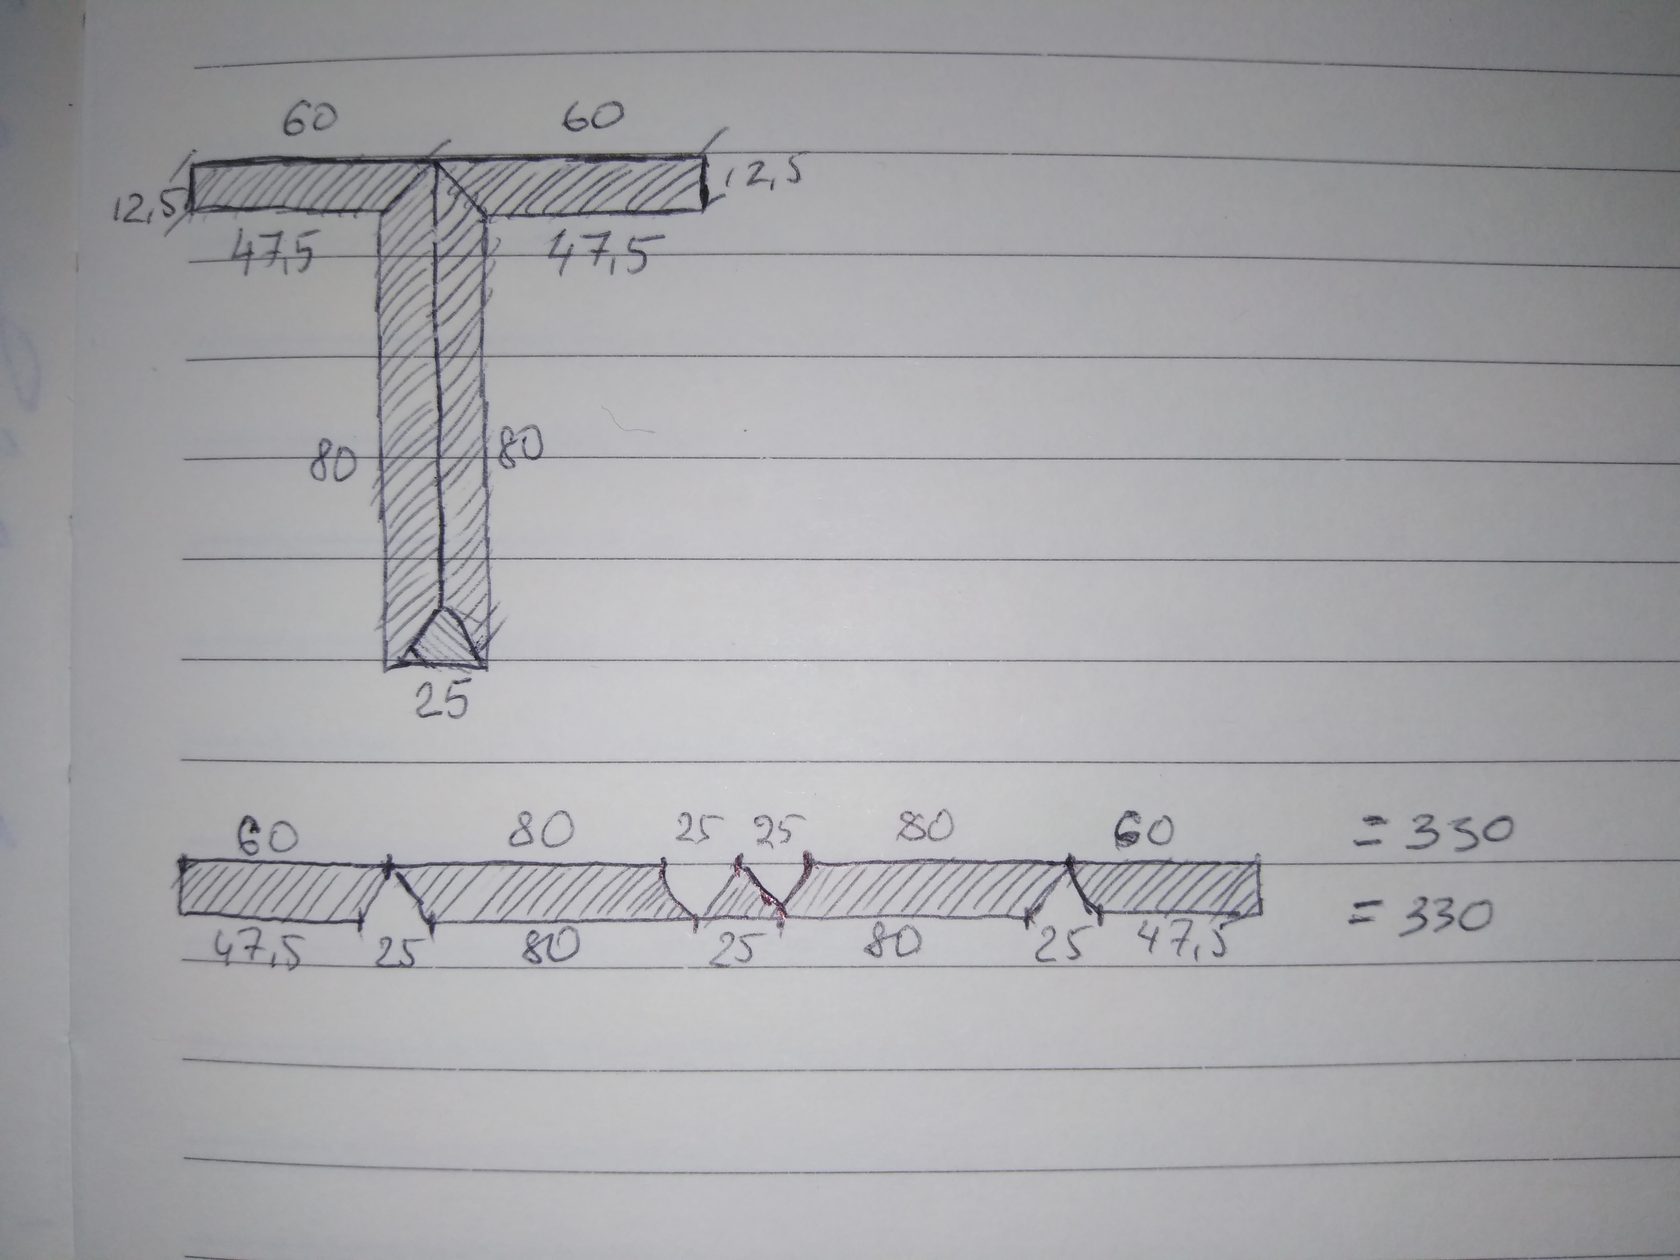 60 60
12,5 12,5
47,5 47,5
80 80
25
60 80 25 25 80 60 = 330
47,5 25 80 25 80 25 47,5 = 330